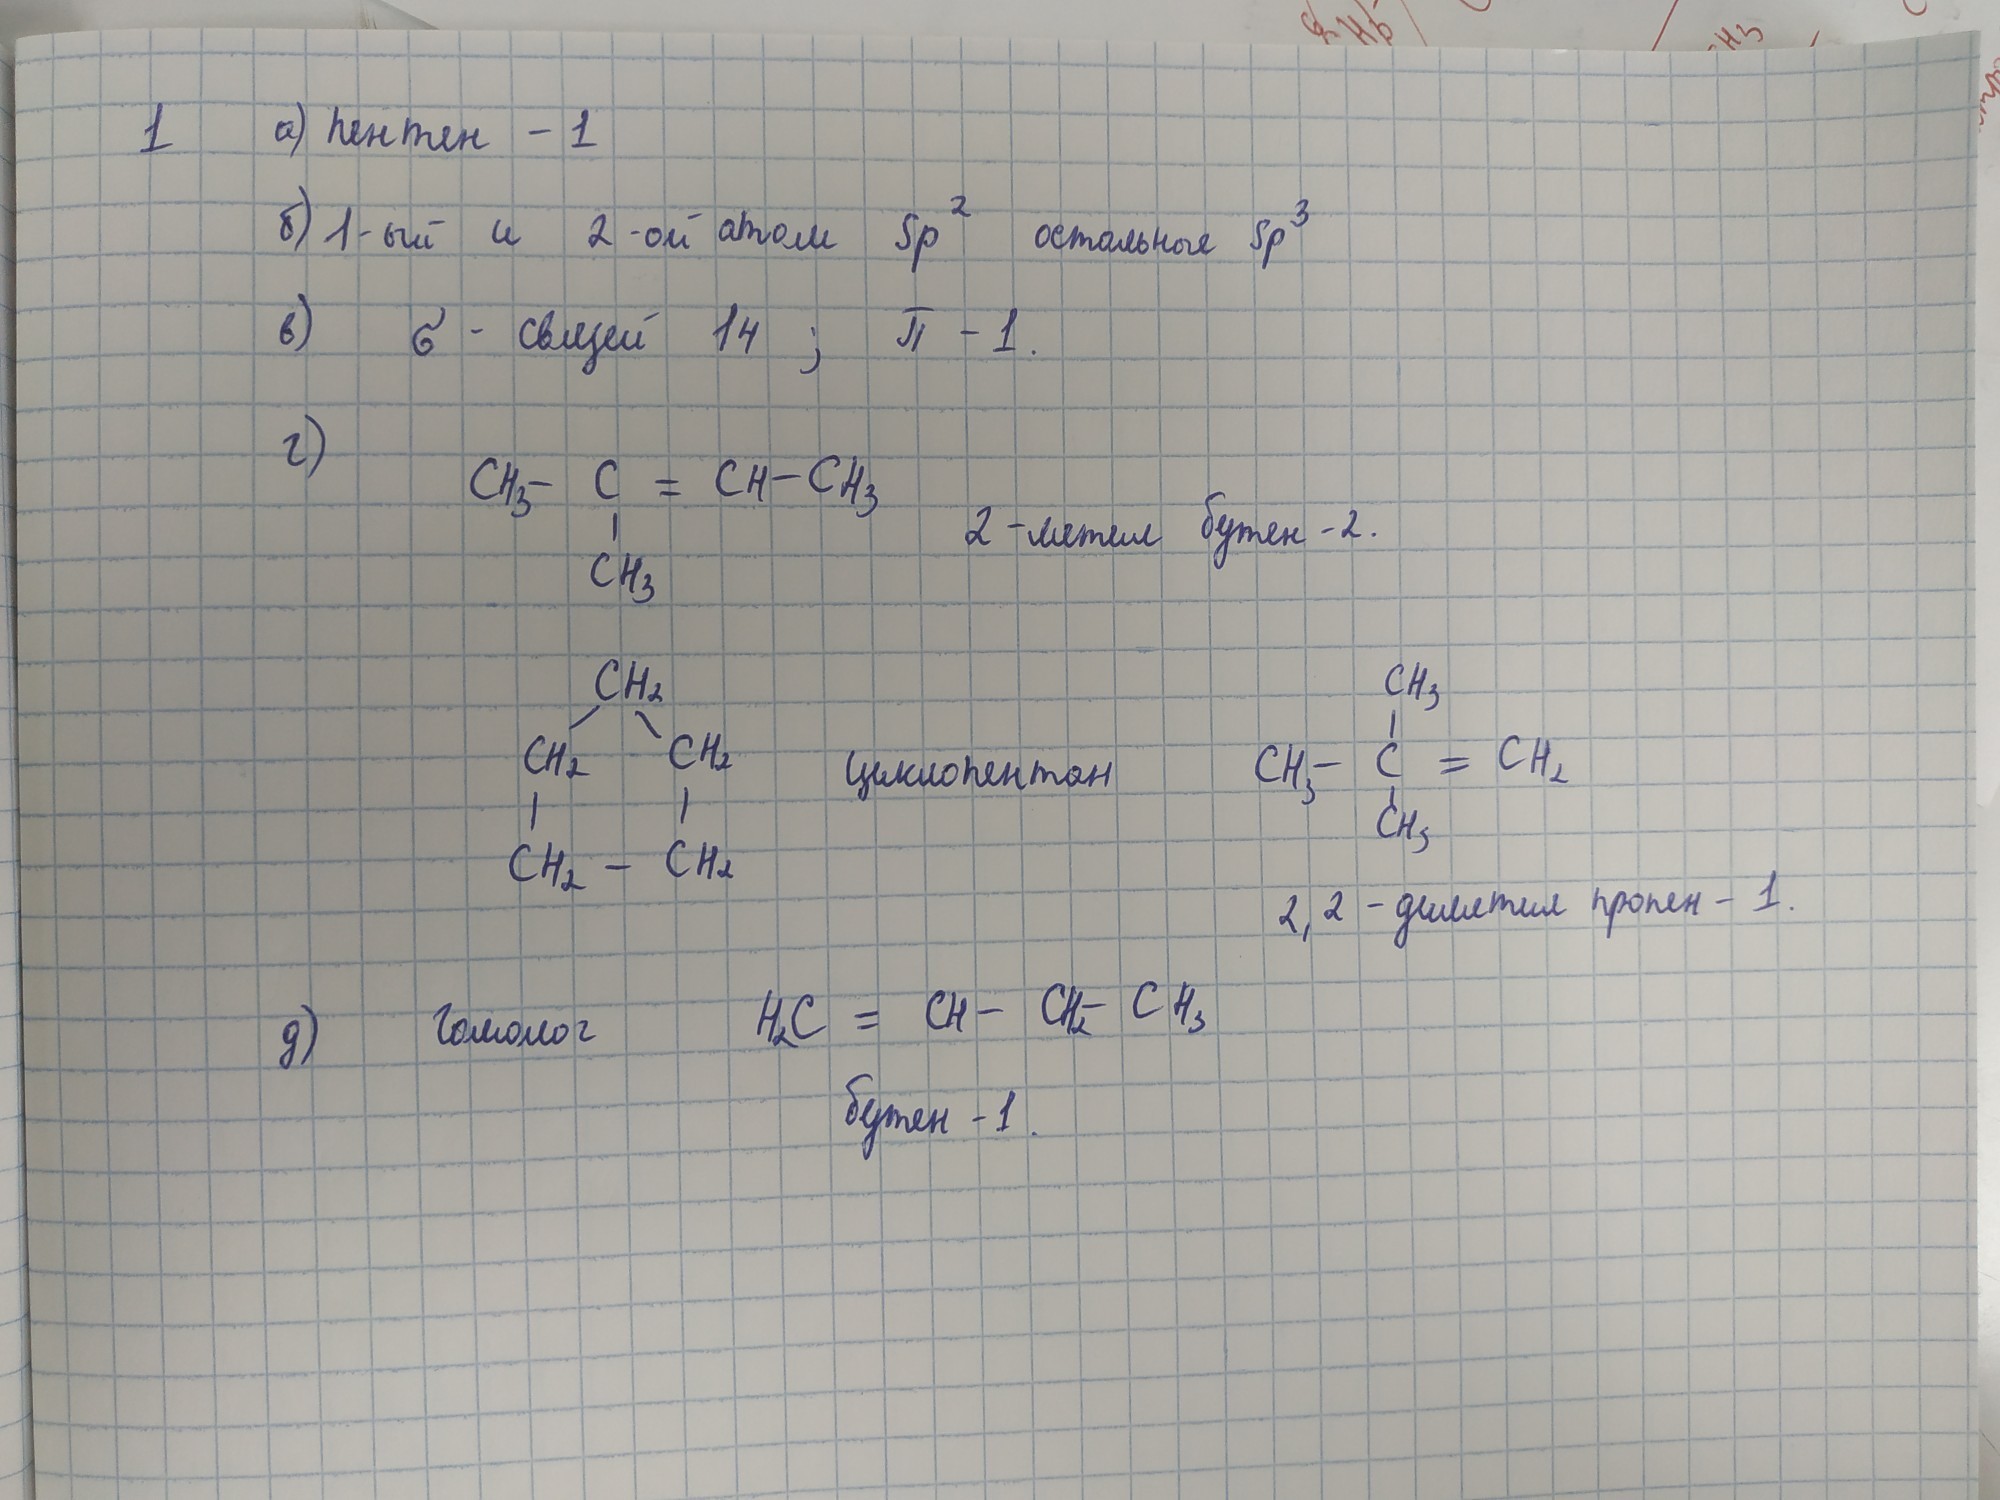 1 а) пентен - 1
б) 1-ый и 2-ой атом sp² остальные sp³
в) σ - связей 14 ; π - 1.
г)
CH₃ - C = CH - CH₃
|
CH₃
2-метил бутен-2.
CH₂
CH₂ CH₂
| |
CH₂ - CH₂
циклопентан
CH₃
|
CH₃ - C = CH₂
|
CH₃
2,2 - диметил пропен - 1.
д) Гомолог H₂C = CH - CH₂ - CH₃
бутен - 1.